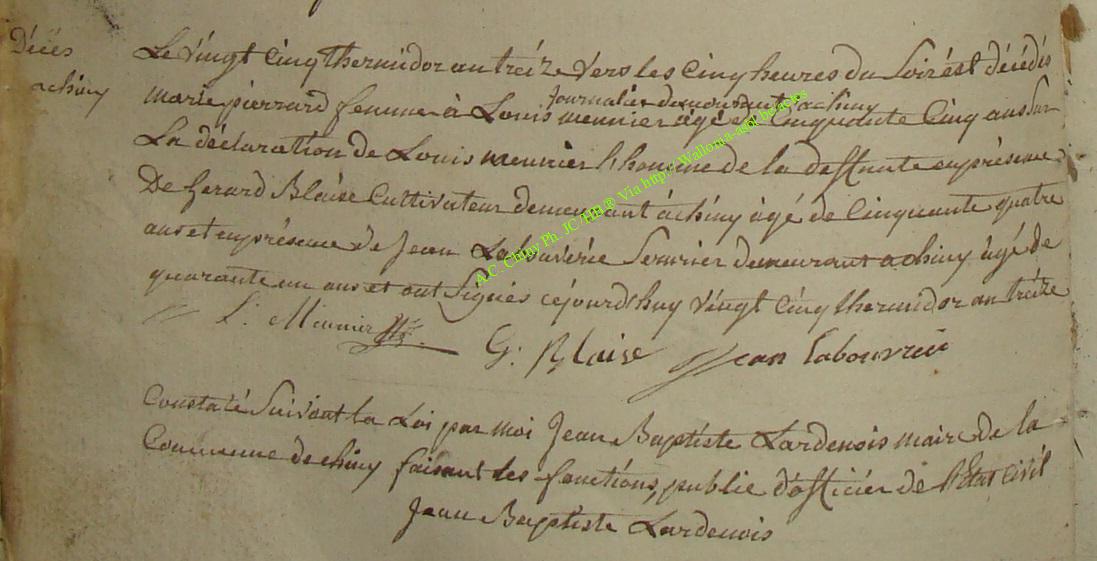 Décès
a chiny
Le vingt Cinq thermidor an treize vers les cinq heures du Soir est décédés
journalier demeurant a chiny
marie pierrard femme à Louis meunier agée de Cinquante Cinq ans Sur
La déclaration de Louis meunier lhomme de la deffunte en présence
De Gerard Blaise Cultivateur demeurant à chiny àgé de Cinquante quatre
ans et en présence de Jean Labouvérie Serurier demeurant a chiny àgé de
quarante un ans et ont Signés cejourdhuy vingt Cinq thermidor an treize
L. Meunier
G. Blaise Jean Labouvrie
Constaté Suivant la Loi par moi Jean Baptiste Lardenois maire de la
Commune de chiny faisant les fonctions, public d'officier de l'Etat civil
Jean Baptiste Lardenois
A.C. Chiny Ph. JC HB @ Via http://Wallonia-asbl.be/actes